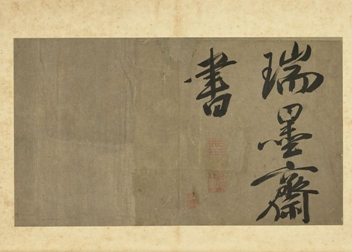 瑞墨齋
書